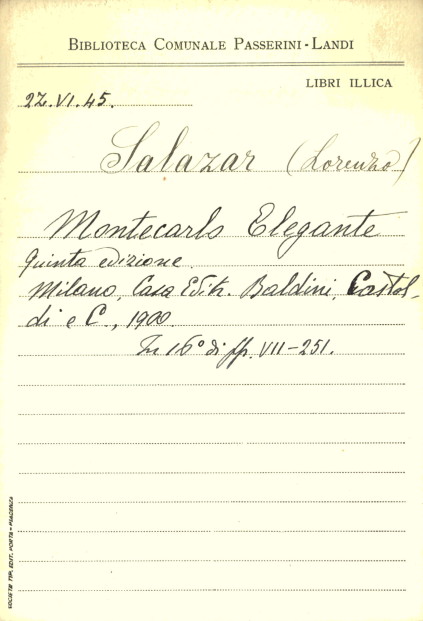 BIBLIOTECA COMUNALE PASSERINI-LANDI
LIBRI ILLICA
2Z.VI.45.
Salazar (Lorenzo)
Montecarlo Elegante
Quinta edizione.
Milano, Casa Editr. Baldini, Castol-
di e C., 1900.
In 16° di pp. VII-251.
SOCIETÀ TIP. EDIT. PORTA - PIACENZA